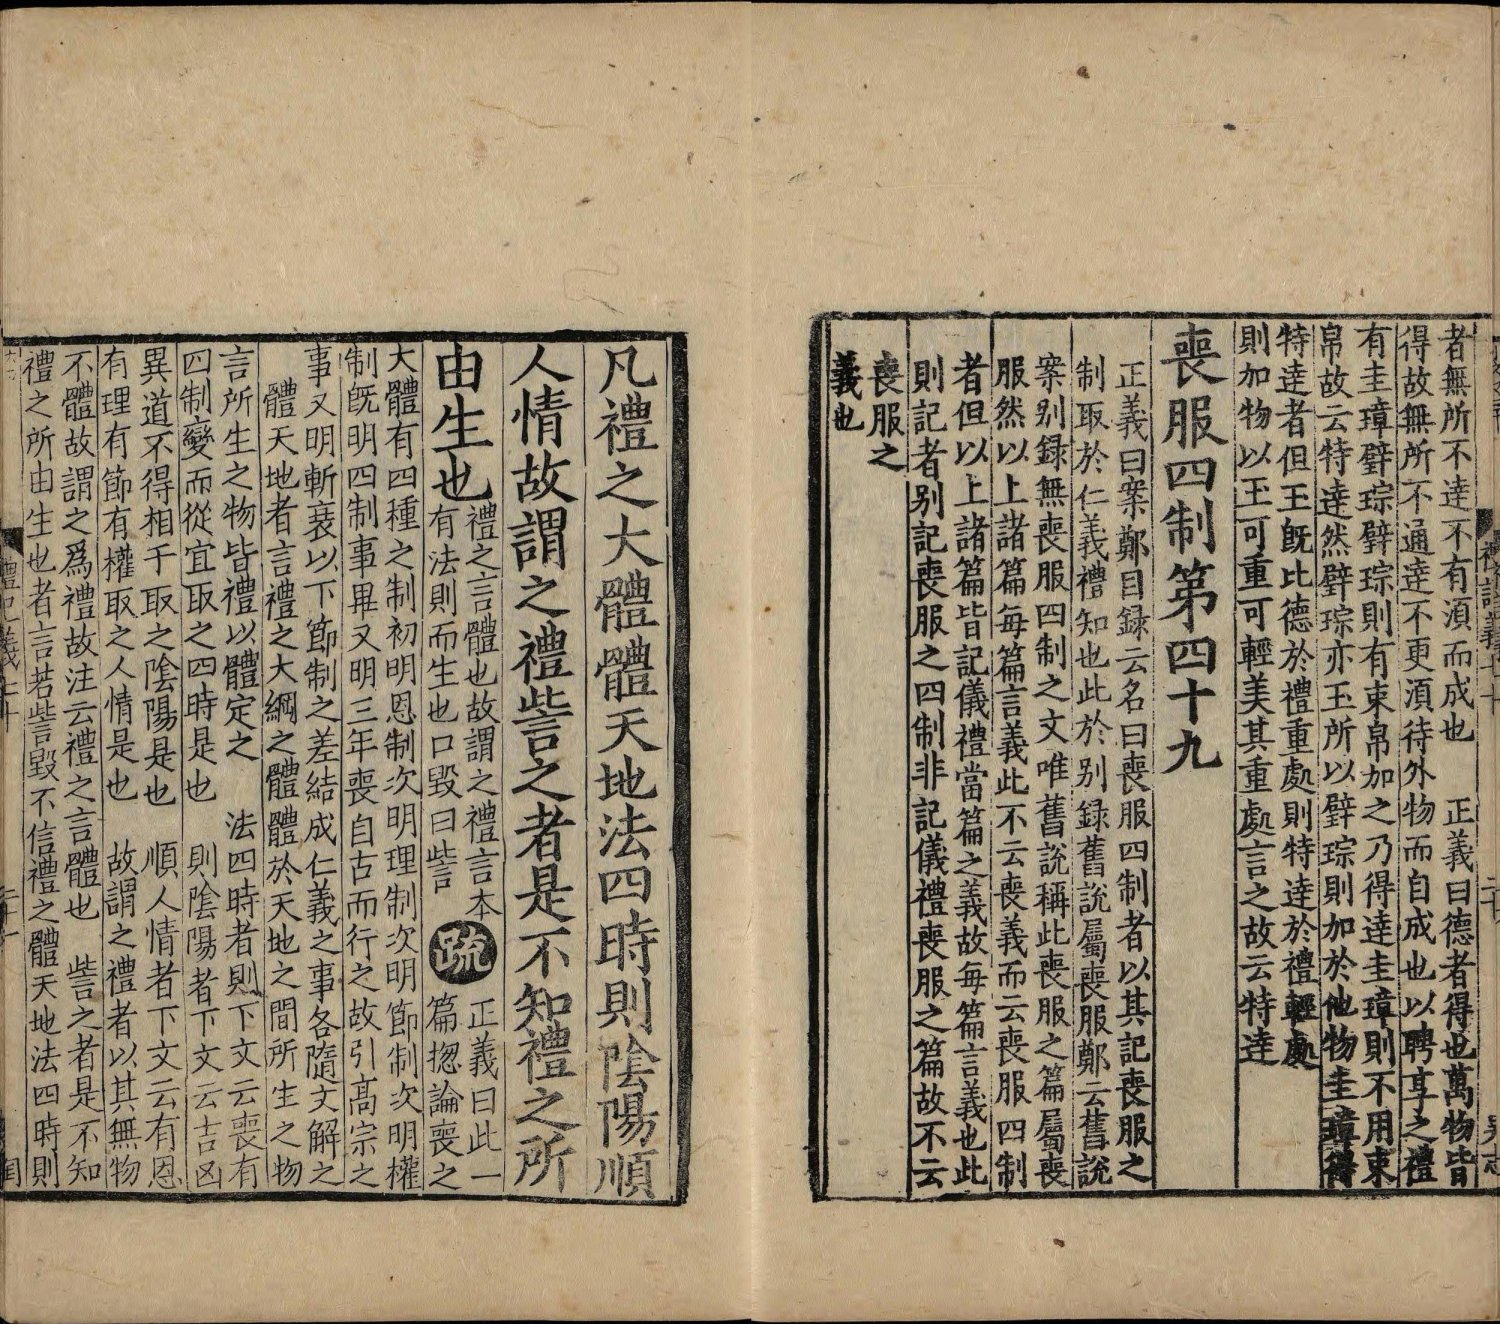 者無所不達不有湏而成也　正義曰德者得也萬物皆
得故無所不通達不更湏待外物而自成也以聘享之禮
有圭璋璧琮璧琮則有束帛加之乃得達圭璋則不用束
帛故云特達然璧琮亦玉所以璧琮則加於他物圭璋得
特達者但玉既比德於禮重處則特達於禮輕處
則加物以玉可重可輕美其重處言之故云特達
喪服四制第四十九
正義曰案鄭目録云名曰喪服四制者以其記喪服之
制取於仁義禮知也此於别録舊說屬喪服鄭云舊說
案别録無喪服四制之文唯舊說稱此喪服之篇屬喪
服然以上諸篇每篇言義此不云喪義而云喪服四制
者但以上諸篇皆記儀禮當篇之義故每篇言義也此
則記者别記喪服之四制非記儀禮喪服之篇故不云
喪服之
義也
凡禮之大體體天地法四時則陰陽順
人情故謂之禮訾之者是不知禮之所
由生也
禮之言體也故謂之禮言本
有法則而生也口毀曰訾
疏
正義曰此一
篇揔論喪之
大體有四種之制初明恩制次明理制次明節制次明權
制既明四制事畢又明三年喪自古而行之故引高宗之
事又明斬衰以下節制之差結成仁義之事各隨文解之
體天地者言禮之大綱之體體於天地之間所生之物
言所生之物皆禮以體定之　法四時者則下文云喪有
四制變而從宜取之四時是也　則陰陽者下文云吉凶
異道不得相干取之陰陽是也　順人情者下文云有恩
有理有節有權取之人情是也　故謂之禮者以其無物
不體故謂之爲禮故注云禮之言體也　訾之者是不知
禮之所由生也者言若訾毀不信禮之體天地法四時則